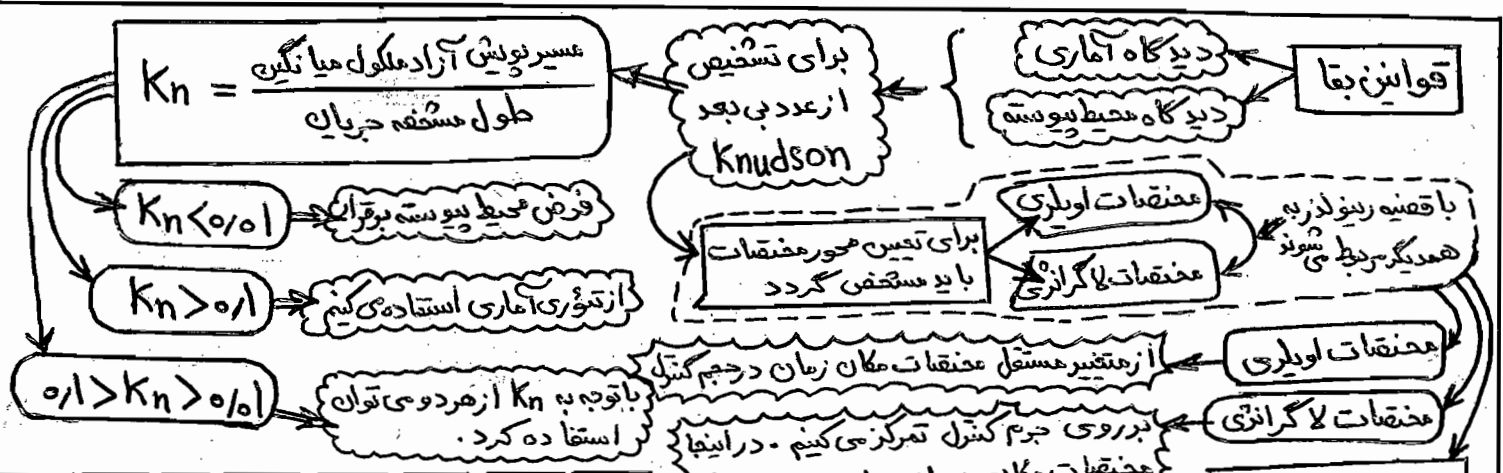 قوانین بقا
دیدگاه آماری
دیدگاه محیط پیوسته
برای تشخیص
از عدد بی بعد
Knudson
Kn = مسیر پویش آزاد ملکول میانگین
طول مشخصه جریان
Kn<0/01
فرض محیط پیوسته برقرار
Kn>0/1
از تئوری آماری استفاده می کنیم
0/1>Kn>0/01
با توجه به Kn از هر دو می توان
استفاده کرد.
برای تعیین محور مختصات
باید مشخص گردد
مختصات اویلری
مختصات لاگرانژی
با قضیه رینولدز به
همدیگر مربوط می شوند
مختصات اویلری
از متغییر مستقل مختصات مکان زمان در حجم کنترل
مختصات لاگرانژی
بر روی جرم کنترل تمرکز می کنیم . در اینجا
مختصات مکان